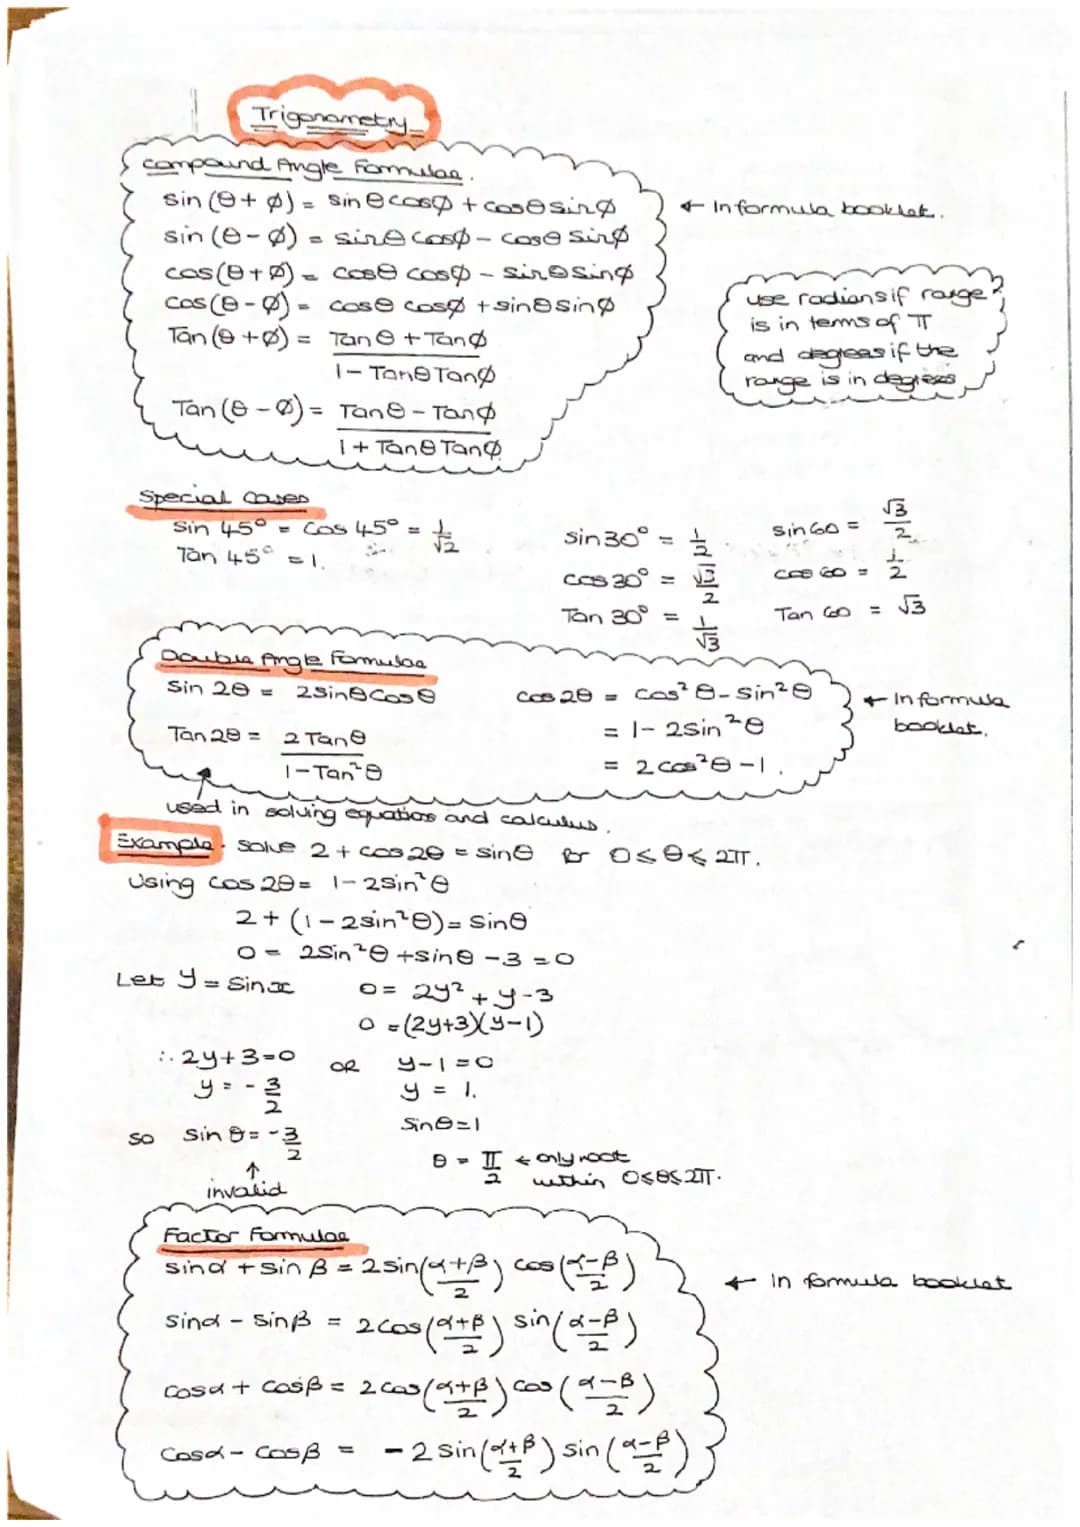 Trigonometry
Compound Angle Formulae.
sin (θ + ø) = sin θ cosø + cosθ sinø
← In formula booklet.
sin (θ - ø) = sinθ cosø - cosθ sinø
cos (θ + ø) = cosθ cosø - sinθ sinø
cos (θ - ø) = cosθ cosø + sinθ sinø
Tan (θ + ø) = Tanθ + Tanø
1 - Tanθ Tanø
Tan (θ - ø) = Tanθ - Tanø
1 + Tanθ Tanø
use radians if range
is in terms of π
and degrees if the
range is in degrees
Special Cases
Sin 45° = Cos 45° = 1/√2
Tan 45° = 1.
sin 30° = 1/2
cos 30° = √3/2
Tan 30° = 1/√3
sin 60 = √3/2
cos 60 = 1/2
Tan 60 = √3
Double Angle Formulae
Sin 2θ = 2sinθ Cosθ
Tan 2θ = 2 Tanθ
1 - Tan²θ
cos 2θ = cos²θ - sin²θ
= 1 - 2sin²θ
= 2 cos²θ - 1.
← In formula
booklet.
used in solving equations and calculus.
Example. Solve 2 + cos 2θ = sinθ for 0 ≤ θ ≤ 2π.
Using cos 2θ = 1 - 2sin²θ
2 + (1 - 2sin²θ) = Sinθ
0 = 2Sin²θ + sinθ - 3 = 0
Let y = Sinx 0 = 2y² + y - 3
0 = (2y+3)(y-1)
∴ 2y + 3 = 0 OR y - 1 = 0
y = -3/2 y = 1.
so Sin θ = -3/2 Sinθ = 1
↑
invalid
θ = π/2 ← only root
within 0≤θ≤2π.
Factor Formulae
sinα + sin β = 2 sin(α+β/2) cos(α-β/2)
← In formula booklet
sinα - sinβ = 2 cos(α+β/2) sin(α-β/2)
cosα + cosβ = 2 cos(α+β/2) cos(α-β/2)
Cosα - cosβ = -2 sin(α+β/2) sin(α-β/2)